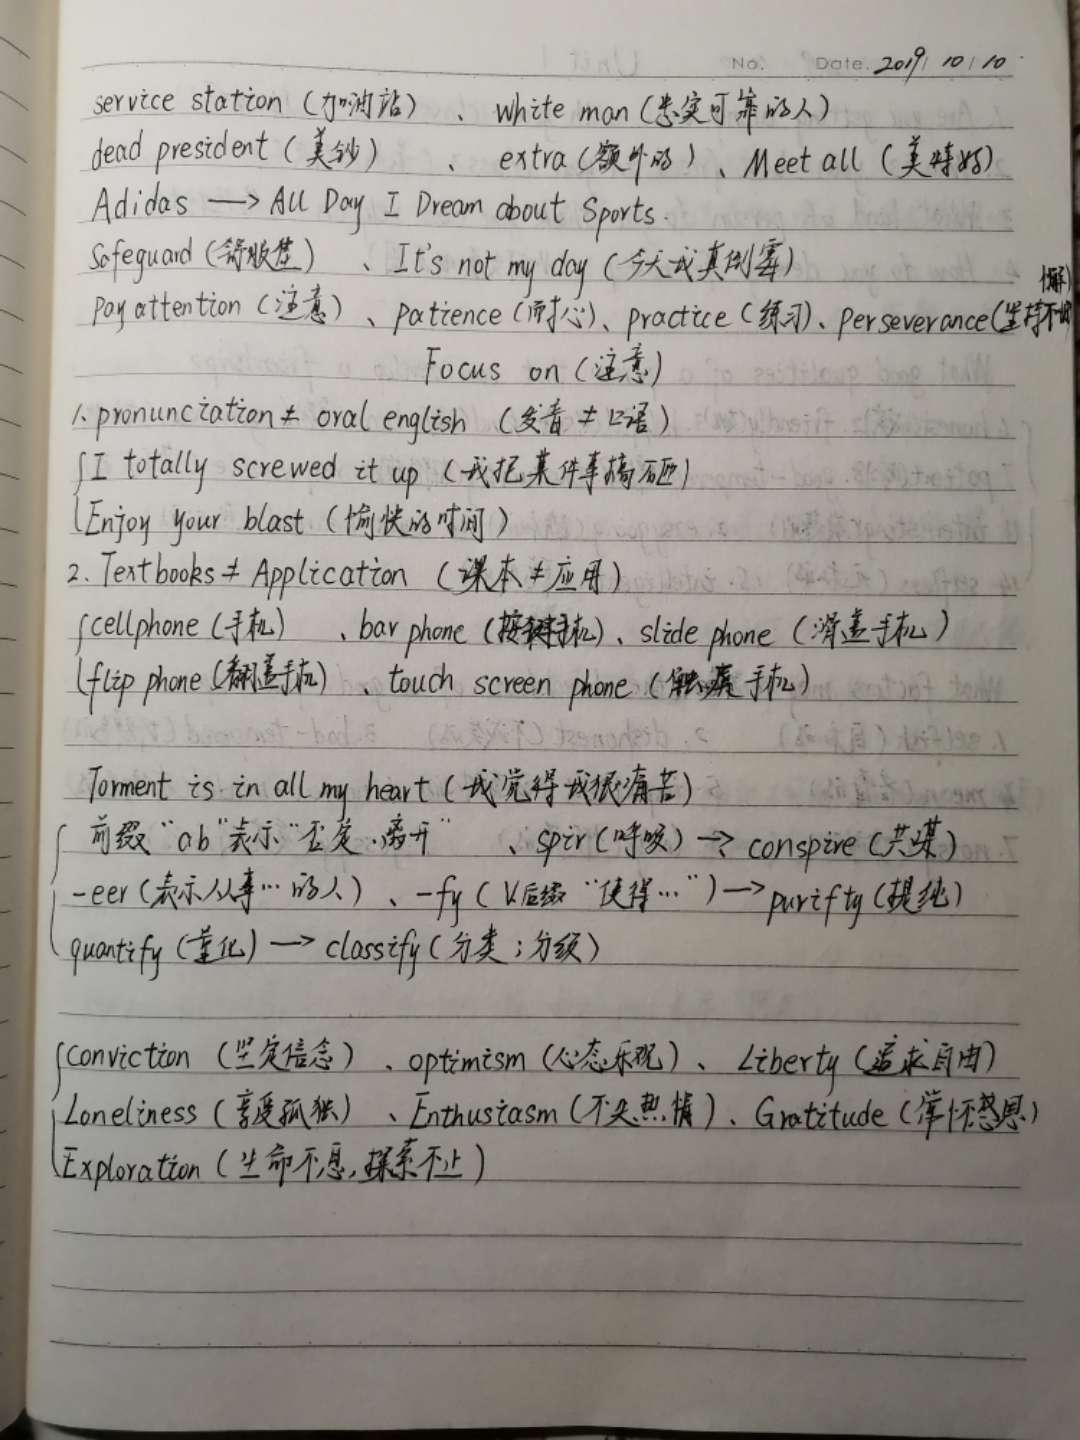 No. Date. 2019 10 10
service station (加油站) 、white man (忠实可靠的人)
dead president (美钞) 、extra (额外的)、Meet all (美特好)
Adidas → All Day I Dream about Sports.
Safeguard (舒肤佳) 、It's not my day (今天我真倒霉)
Pay attention (注意)、patience (耐心)、practice (练习)、perseverance (坚持不懈)
Focus on (注意)
1. pronunciation ≠ oral english (发音≠口语)
I totally screwed it up (我把某件事搞砸)
Enjoy your blast (愉快的时间)
2. Textbooks ≠ Application (课本≠应用)
cellphone (手机) 、bar phone (按键手机)、slide phone (滑盖手机)
flip phone (翻盖手机) 、touch screen phone (触摸手机)
Torment is in all my heart (我觉得我很痛苦)
前缀“ab”表示“否定.离开” 、spir (呼吸) → conspire (共谋)
-eer (表示从事…的人)、-fy (V后缀“使得…”) → purifty (提纯)
quantify (量化) → classify (分类;分级)
Conviction (坚定信念) 、optimism (心态乐观)、Liberty (追求自由)
Loneliness (享受孤独) 、Enthusiasm (不失热情)、Gratitude (常怀感恩)
Exploration (生命不息,探索不止)